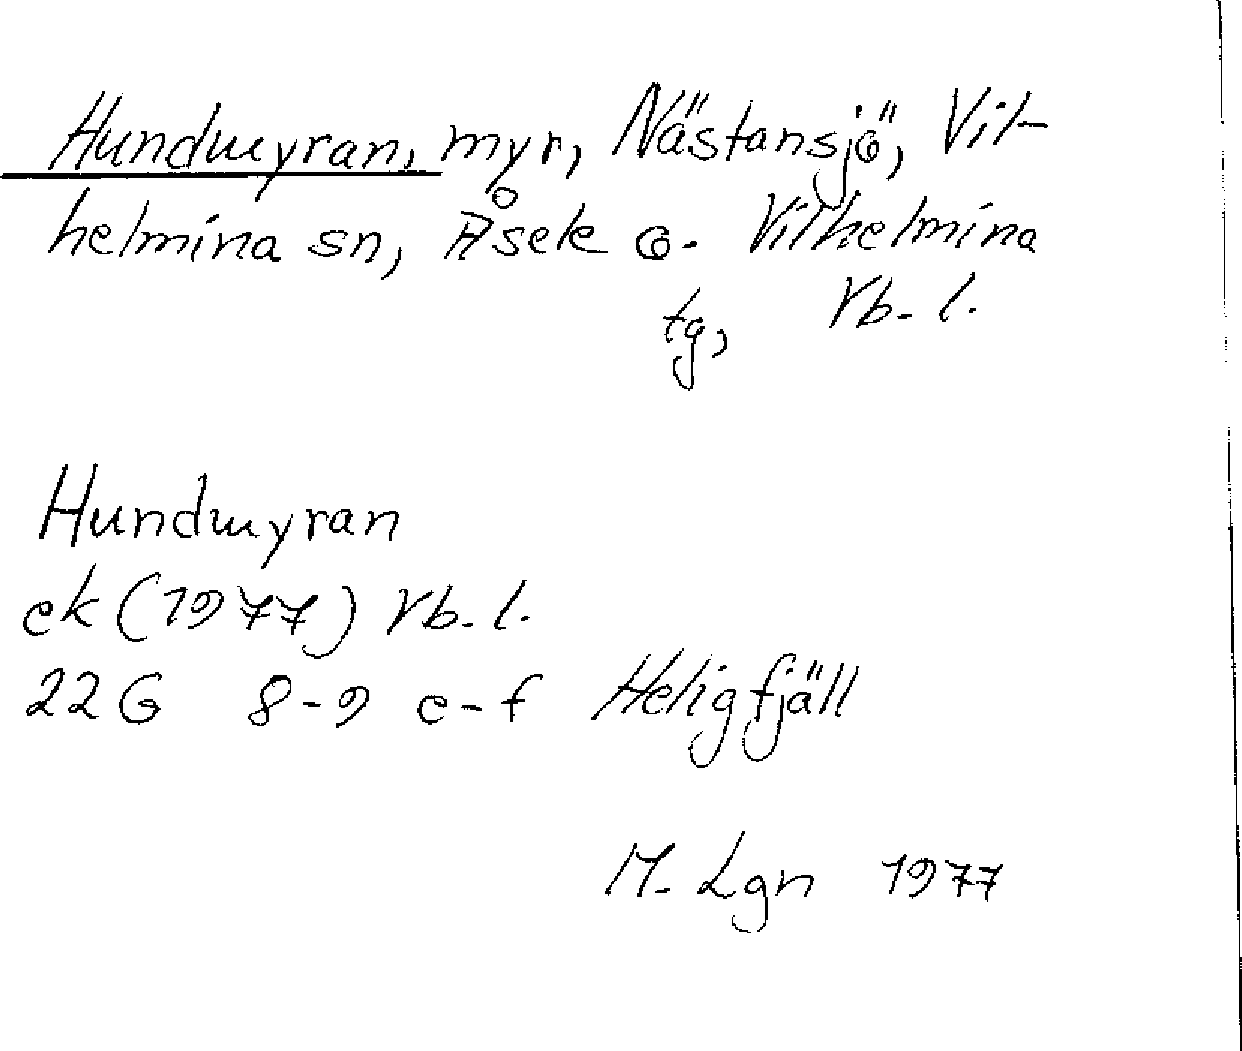 Hundmyran, myr, Nästansjö, Vil-
helmina sn, Åsele o. Vilhelmina
tg, Vb. l.
Hundmyran
ek (1977) Vb. l.
22G 8-9 e-f Heligfjäll
M. Lgn 1977